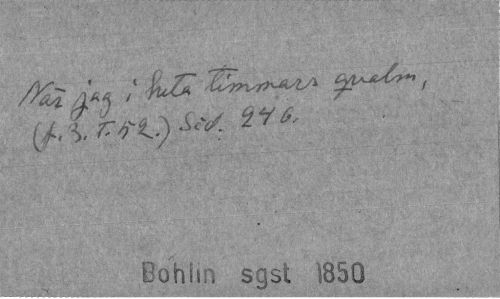 När jag i heta timmars qvalm,
(f. 3. T. 52.) Sid. 246.
Bohlin sgst 1850